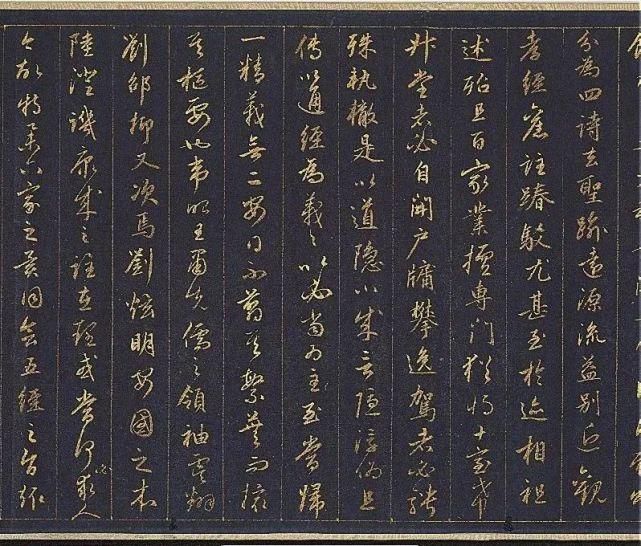 分為四詩去聖逾遠源流益別近觀
孝經舊註踳駁尤甚至於迹相祖
述殆且百家業擅專門猶將十室希
升堂者必自開戶牖攀逸駕者必騁
殊軌轍是以道隱小成言隱浮偽且
傳以通經為義〻以必當為主至當歸
一精義無二安得不翦其繁蕪而撮
其樞要也韋昭王肅先儒之領袖虞翻
劉邵抑又次焉劉炫明安國之本
陸澄譏康成之註在理或當何必求人
今故特舉六家之異同會五經之旨趣